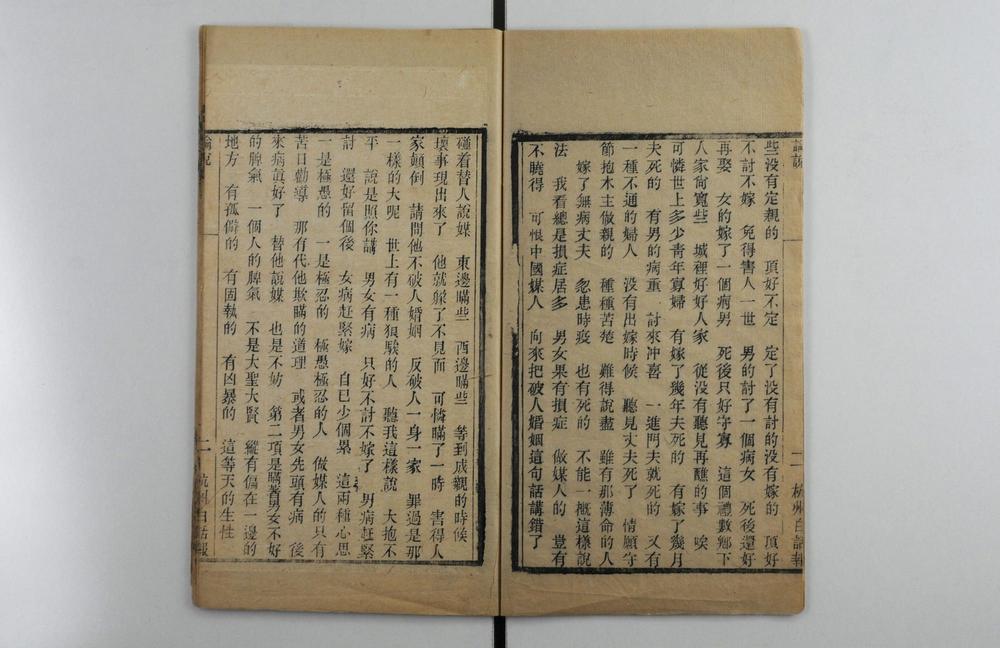 論說
二
杭州白話報
些没有定親的　頂好不定　定了没有討的没有嫁的　頂好
不討不嫁　免得害人一世　男的討了一個病女　死後還好
再娶　女的嫁了一個病男　死後只好守寡　這個禮數鄉下
人家尙寬些　城裡好好人家　從没有聽見再醮的事　唉
可憐世上多少靑年寡婦　有嫁了幾年夫死的　有嫁了幾月
夫死的　有男的病重　討來冲喜　一進門夫就死的　又有
一種不通的婦人　没有出嫁時候　聽見丈夫死了　情願守
節抱木主做親的　種種苦楚　難得說盡　雖有那薄命的人
嫁了無病丈夫　忽患時疫　也有死的　不能一槪這樣說
法　我看總是損症居多　男女果有損症　做媒人的　豈有
不曉得　可恨中國媒人　向來把破人婚姻這句話講錯了
碰着替人說媒　東邊瞞些　西邊瞞些　等到成親的時候
壞事現出來了　他就躱了不見面　可憐瞞了一時　害得人
家顚倒　請問他不破人婚姻　反破人一身一家　罪過是那
一樣的大呢　世上有一種狠騃的人　聽我這樣說　大抱不
平　說是照你講　男女有病　只好不討不嫁了　男病赶緊
討　還好留個後　女病赶緊嫁　自已少個累　這兩種心思
一是極愚的　一是極忍的　極愚極忍的人　做媒人的只有
苦口勸導　那有代他欺瞞的道理　或者男女先頭有病　後
來病眞好了　替他說媒　也是不妨　第二項是瞞着男女不好
的脾氣　一個人的脾氣　不是大聖大賢　縱有偏在一邊的
地方　有孤僻的　有固執的　有凶暴的　這等天的生性
論說
二
杭州白話報